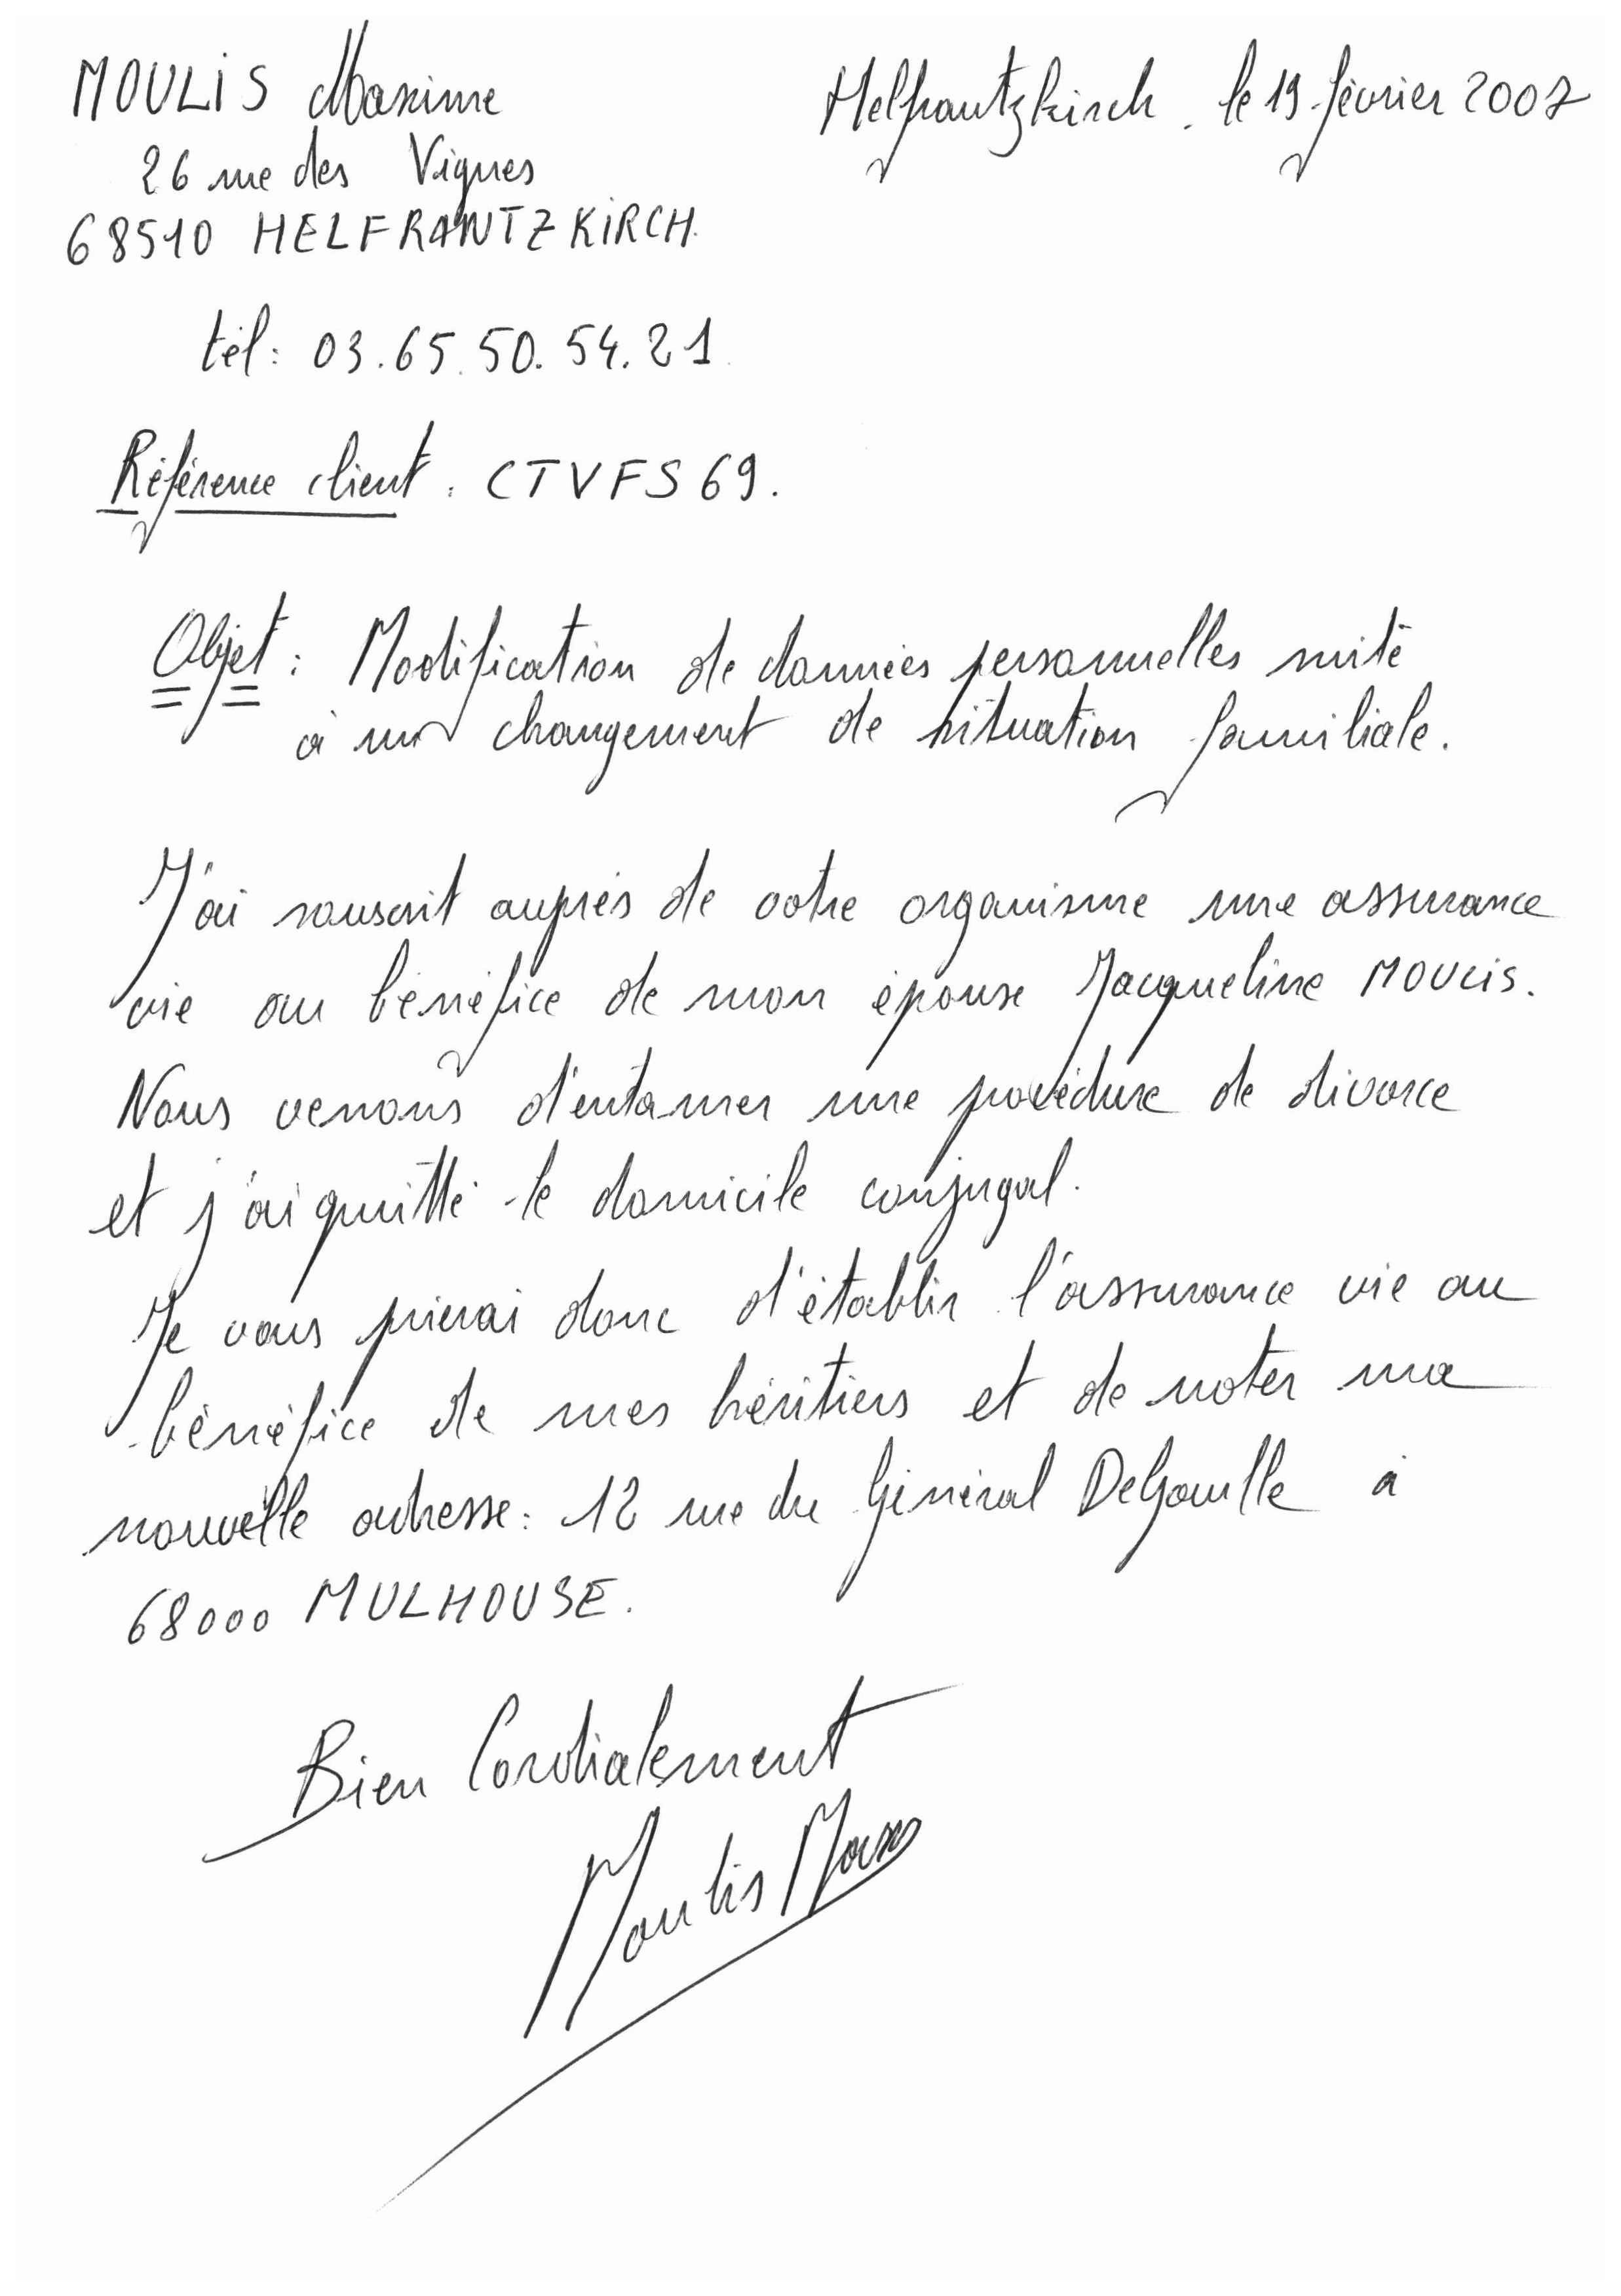 MOULIS Maxime
Helfrantzkirch, le 19 février 2007
26 rue des Vignes
68510 HELFRANTZKIRCH.
tél: 03.65.50.54.21.
Référence client : CTVFS69.
Objet : Modification de données personnelles suite
à un changement de situation familiale.
J'ai souscrit auprès de votre organisme une assurance
vie au bénéfice de mon épouse Jacqueline MOULIS.
Nous venons d'entamer une procédure de divorce
et j'ai quitté le domicile conjugal.
Je vous prierai donc d'établir l'assurance vie au
bénéfice de mes héritiers et de noter ma
nouvelle adresse: 12 rue du Général DeGaulle à
68000 MULHOUSE.
Bien Cordialement
Moulis